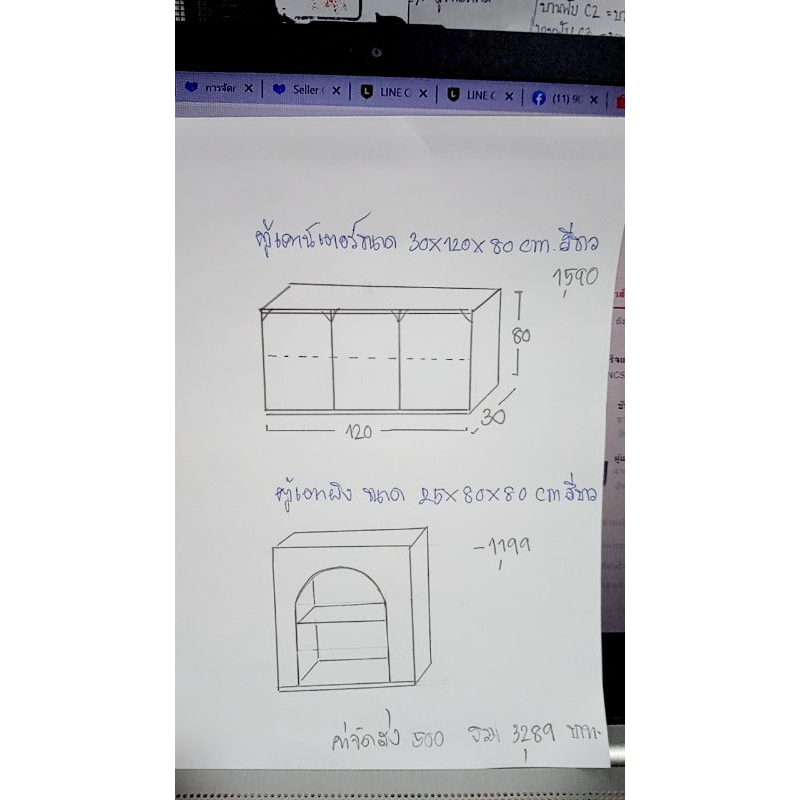 บานพับ C2 = บา
การจัดก
Seller
LINE C
LINE C
(11) 9C
ตู้เคาน์เตอร์ขนาด 30x120x80 cm. สีขาว
1,590
80
30
120
ตู้เตาผิง ขนาด 25x80x80 cm สีขาว
-1,199
ค่าจัดส่ง 500 รวม 3,289 บาท